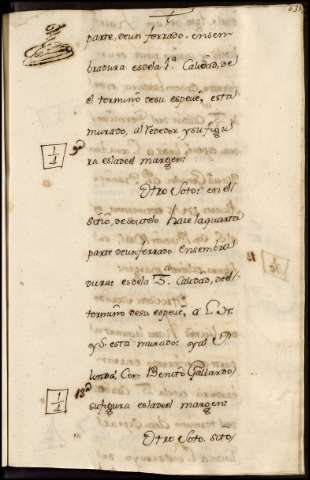 parte, de un ferrado, ensem
bradura es de la 1ª Calidad, de
el termino de su espeçie, esta
murado, al rededor y su figu
1/4
ra es la del margen:
Otro Soto: en el
sitio, de hace la quarta
parte de un ferrado Ensembra
dura: es de la Calidad, de el
termino de su espeçie, a L.
y esta murado: y al
linda, Con Benito Gallardo
1/4
su figura es la del margen:
Otro Soto, sito